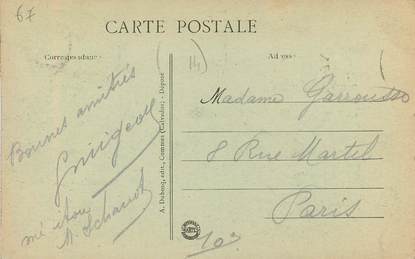 67
CARTE POSTALE
Correspondance
Adresse
(14)
Bonnes amitiés
mé itou
A. Dubosq, édit., Commes (Calvados) - Déposé
Madame Garrousso
8 Rue Martel
Paris
10e